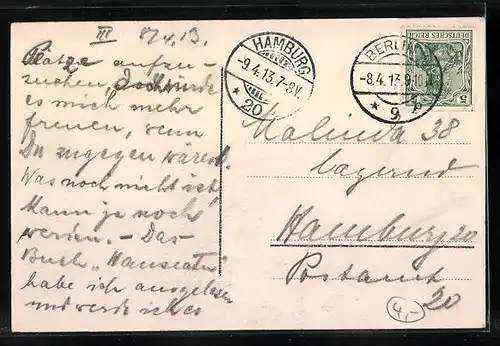 III 8/4.13.
Plätze aufzu-
suchen, doch würde
es mich mehr
freuen, wenn
Du zugegen wärest.
Was noch nicht ist,
kann ja noch
werden. – Das
Buch „Hanseaten"
habe ich ausgelesen
und werde ich es
HAMBURG
-9.4.13.7-8V.
* 20
BERLIN
-8.4.13.9-10
* 9
DEUTSCHES REICH
5
Malinda 38
lagernd
Hamburg 20
Postamt
20
4,-